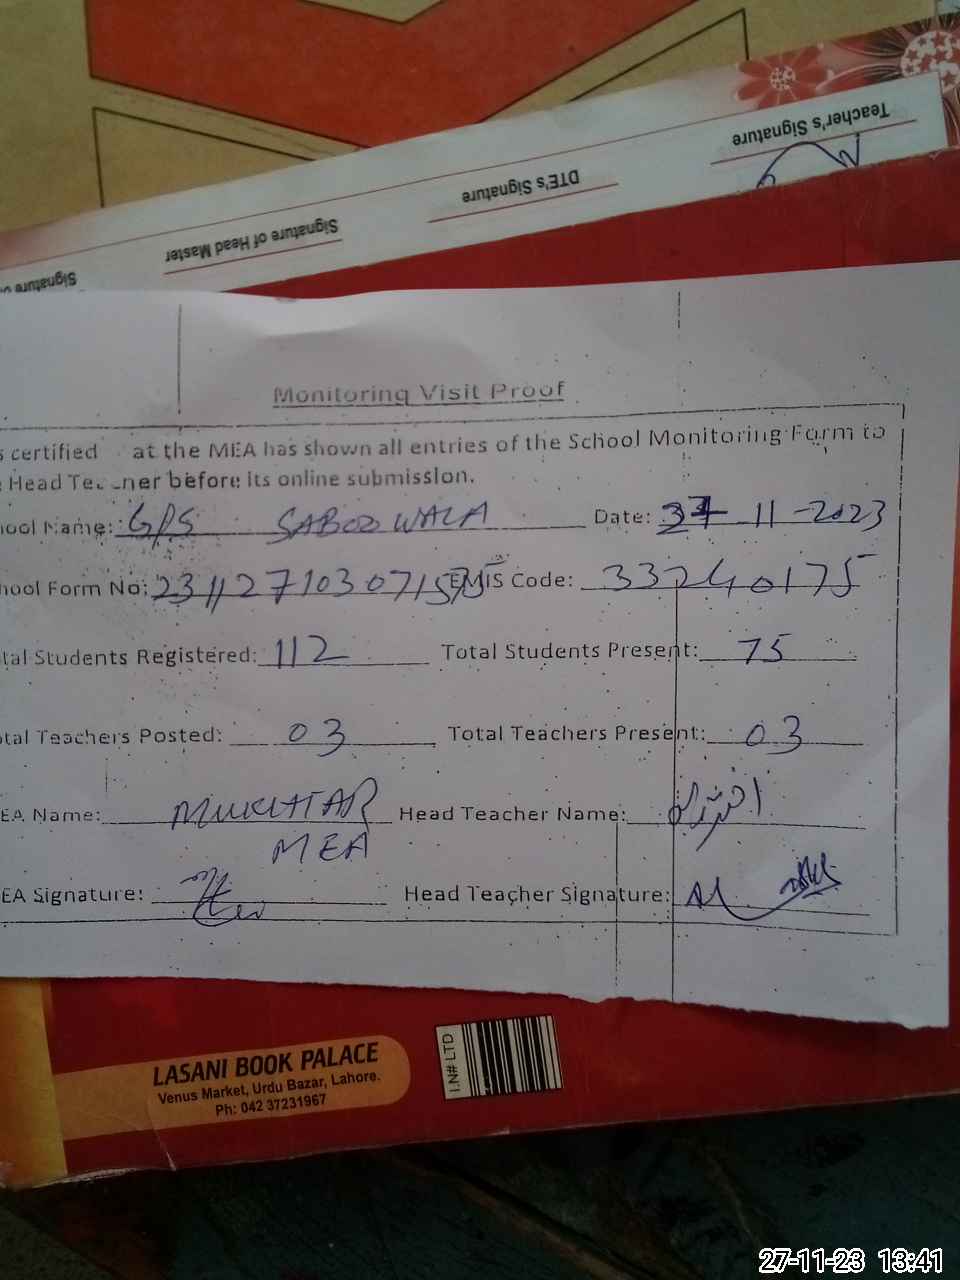 Teacher's Signature
DTE's Signature
Signature of Head Master
Signature
Monitoring Visit Proof
certified at the MEA has shown all entries of the School Monitoring Form to
Head Teacher before its online submission.
ool Name: GPS SABOO WALA Date: 27-11-2023
hool Form No: EMIS Code: 33240175
tal Students Registered: 112 Total Students Present: 75
tal Teachers Posted: 03 Total Teachers Present: 03
EA Name: MUKHTAR Head Teacher Name:
MEA
EA Signature: Head Teacher Signature:
LASANI BOOK PALACE
Venus Market, Urdu Bazar, Lahore.
Ph: 042 37231967
I.N# LTD
27-11-23 13:41